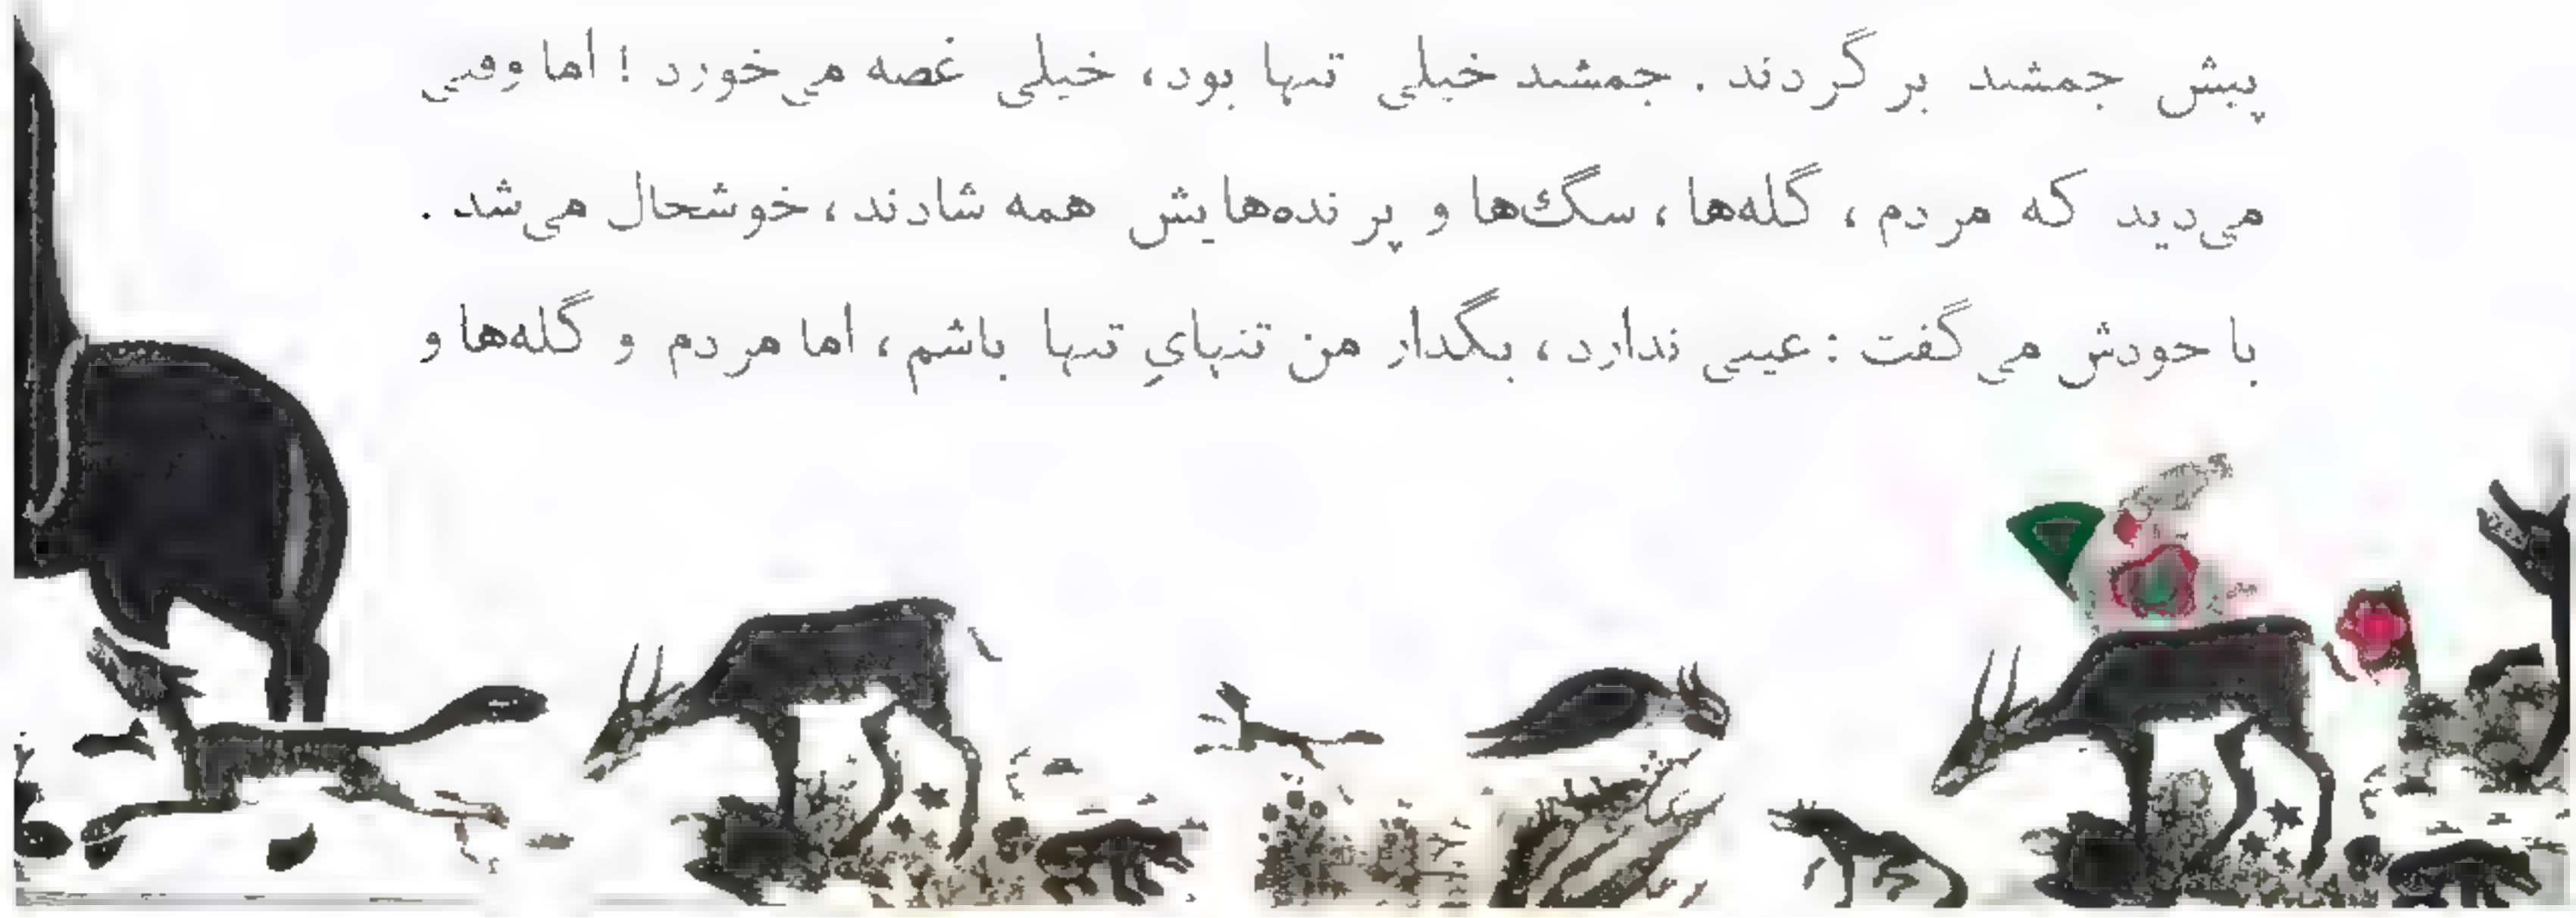 پیش جمشید برگردند. جمشید خیلی تنها بود، خیلی غصه می‌خورد! اما وقتی
می‌دید که مردم، گله‌ها، سگ‌ها و پرنده‌هایش همه شادند، خوشحال می‌شد.
با خودش می‌گفت: عیبی ندارد، بگذار من تنهایِ تنها باشم، اما مردم و گله‌ها و